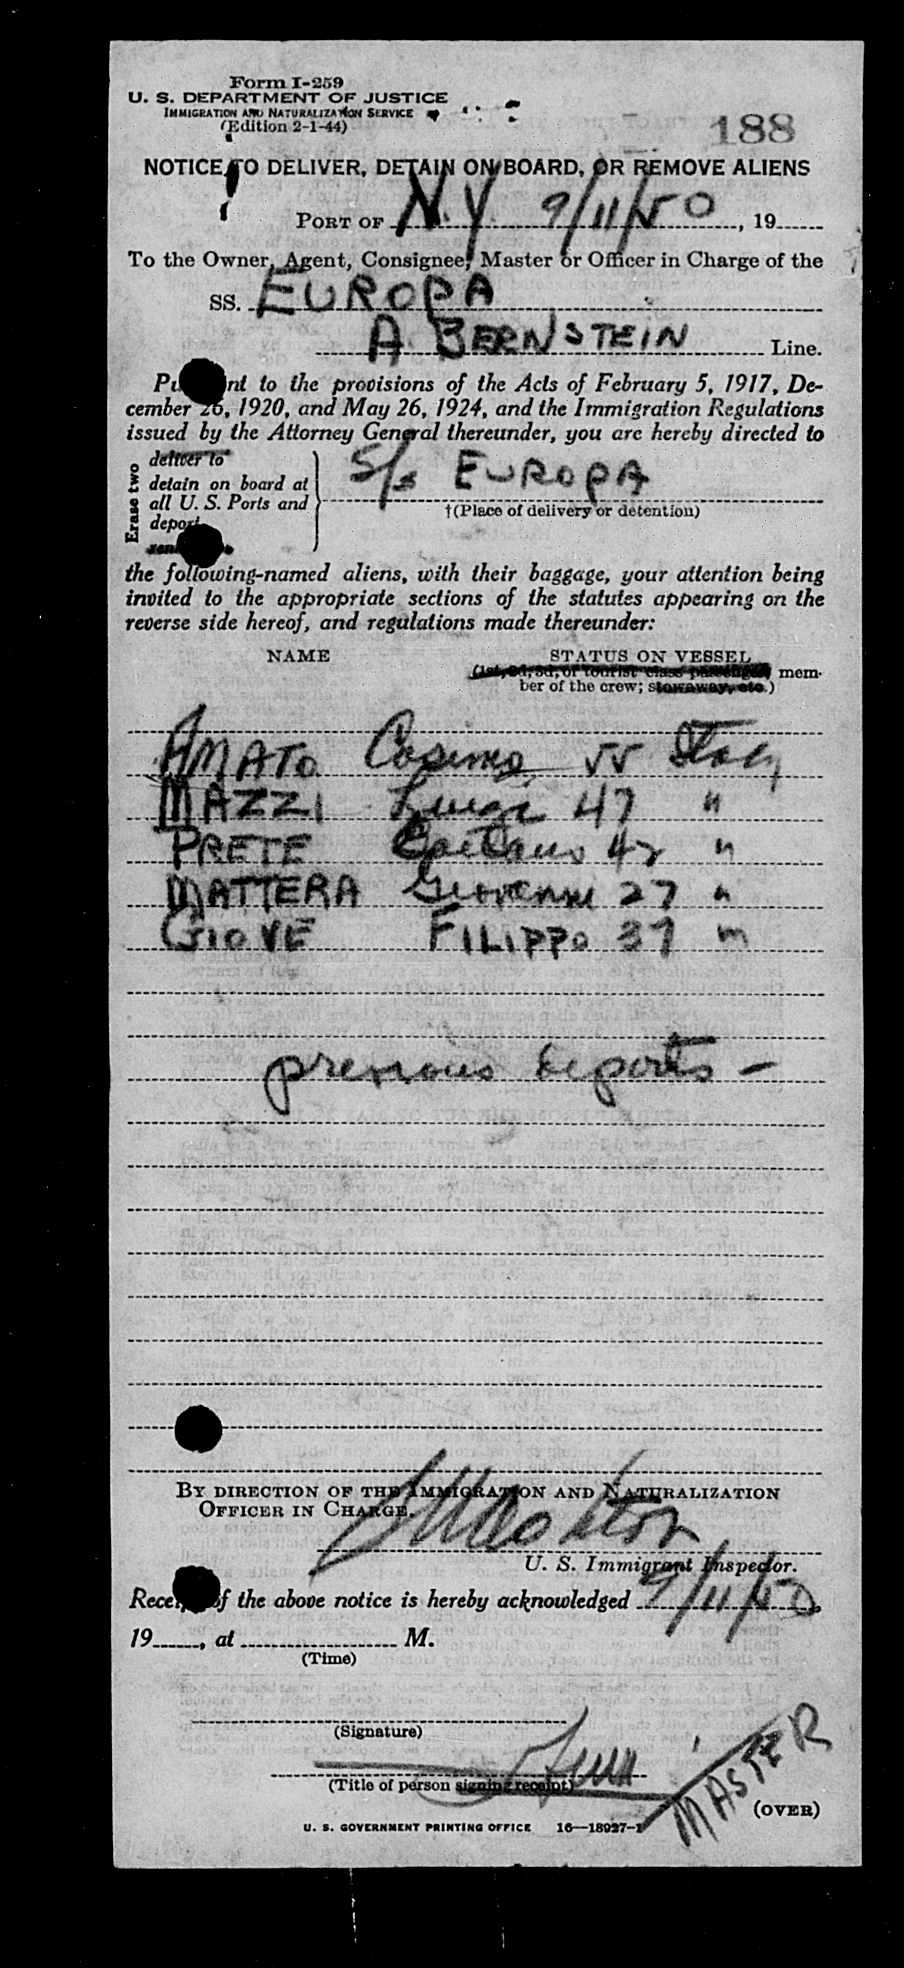 Form I-259
U. S. DEPARTMENT OF JUSTICE
IMMIGRATION AND NATURALIZATION SERVICE
(Edition 2-1-44)
188
NOTICE TO DELIVER, DETAIN ON BOARD, OR REMOVE ALIENS
PORT OF N.Y. 9/11/50, 19
To the Owner, Agent, Consignee, Master or Officer in Charge of the
SS. EUROPA
A BERNSTEIN Line.
to the provisions of the Acts of February 5, 1917, De-
cember 26, 1920, and May 26, 1924, and the Immigration Regulations
issued by the Attorney General thereunder, you are hereby directed to
Erase two
deliver to
detain on board at
all U. S. Ports and
deport
S/s EUROPA
†(Place of delivery or detention)
the following-named aliens, with their baggage, your attention being
invited to the appropriate sections of the statutes appearing on the
reverse side hereof, and regulations made thereunder:
NAME STATUS ON VESSEL
(1st, 2d, 3d, or tourist class passenger, mem-
ber of the crew; stowaway, etc.)
AMATO Cosimo 55 Italy
MAZZI Luigi 47 "
PRETE Gaetano 42 "
MATTERA Giovanni 27 "
GIOVE FILIPPO 37 "
previous deports -
BY DIRECTION OF THE IMMIGRATION AND NATURALIZATION
OFFICER IN CHARGE.
U. S. Immigrant Inspector.
of the above notice is hereby acknowledged 9/11/50,
19, at M.
(Time)
(Signature)
(Title of person signing receipt)
MASTER
(OVER)
U. S. GOVERNMENT PRINTING OFFICE 16—18927-1